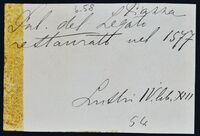 6.58 Piazza
Pal. del Legato
restaurato nel 1577
Lustri W. lib. XIII
54